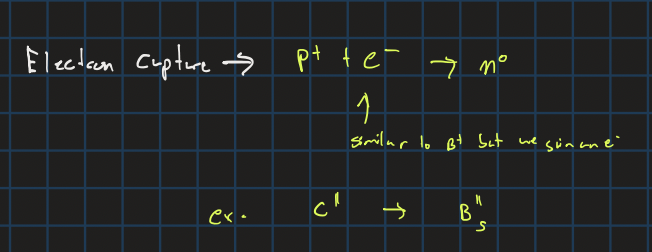 Electron Capture → p⁺ + e⁻ → n⁰
↑
similar to β⁺ but we
ex. C¹¹ → B¹¹₅